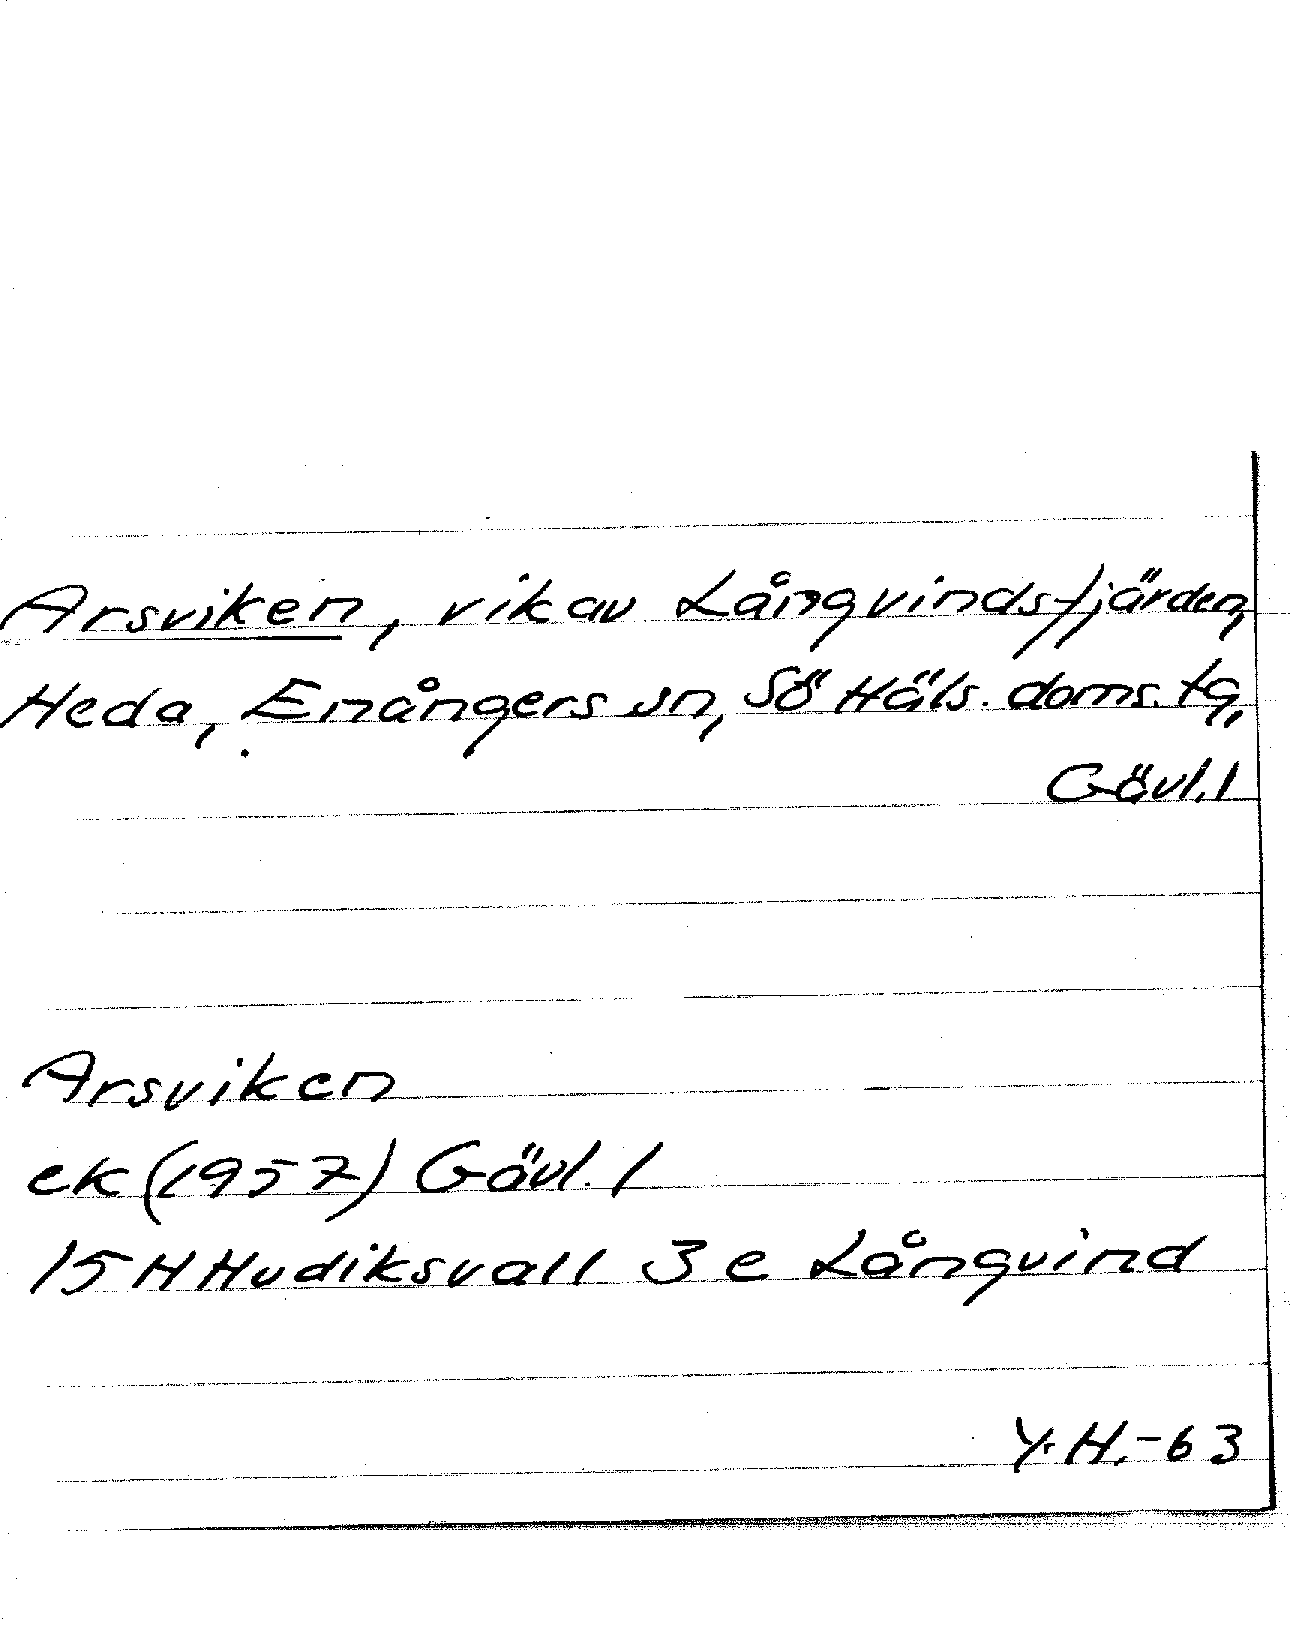 Arsviken, vik av Långvindsfjärden,
Heda, Enångers sn, Sö Häls. doms. tg,
Gävl. l
Arsviken
ek (1957) Gävl. l
15 H Hudiksvall 3 e Långvind
Y. H. -63